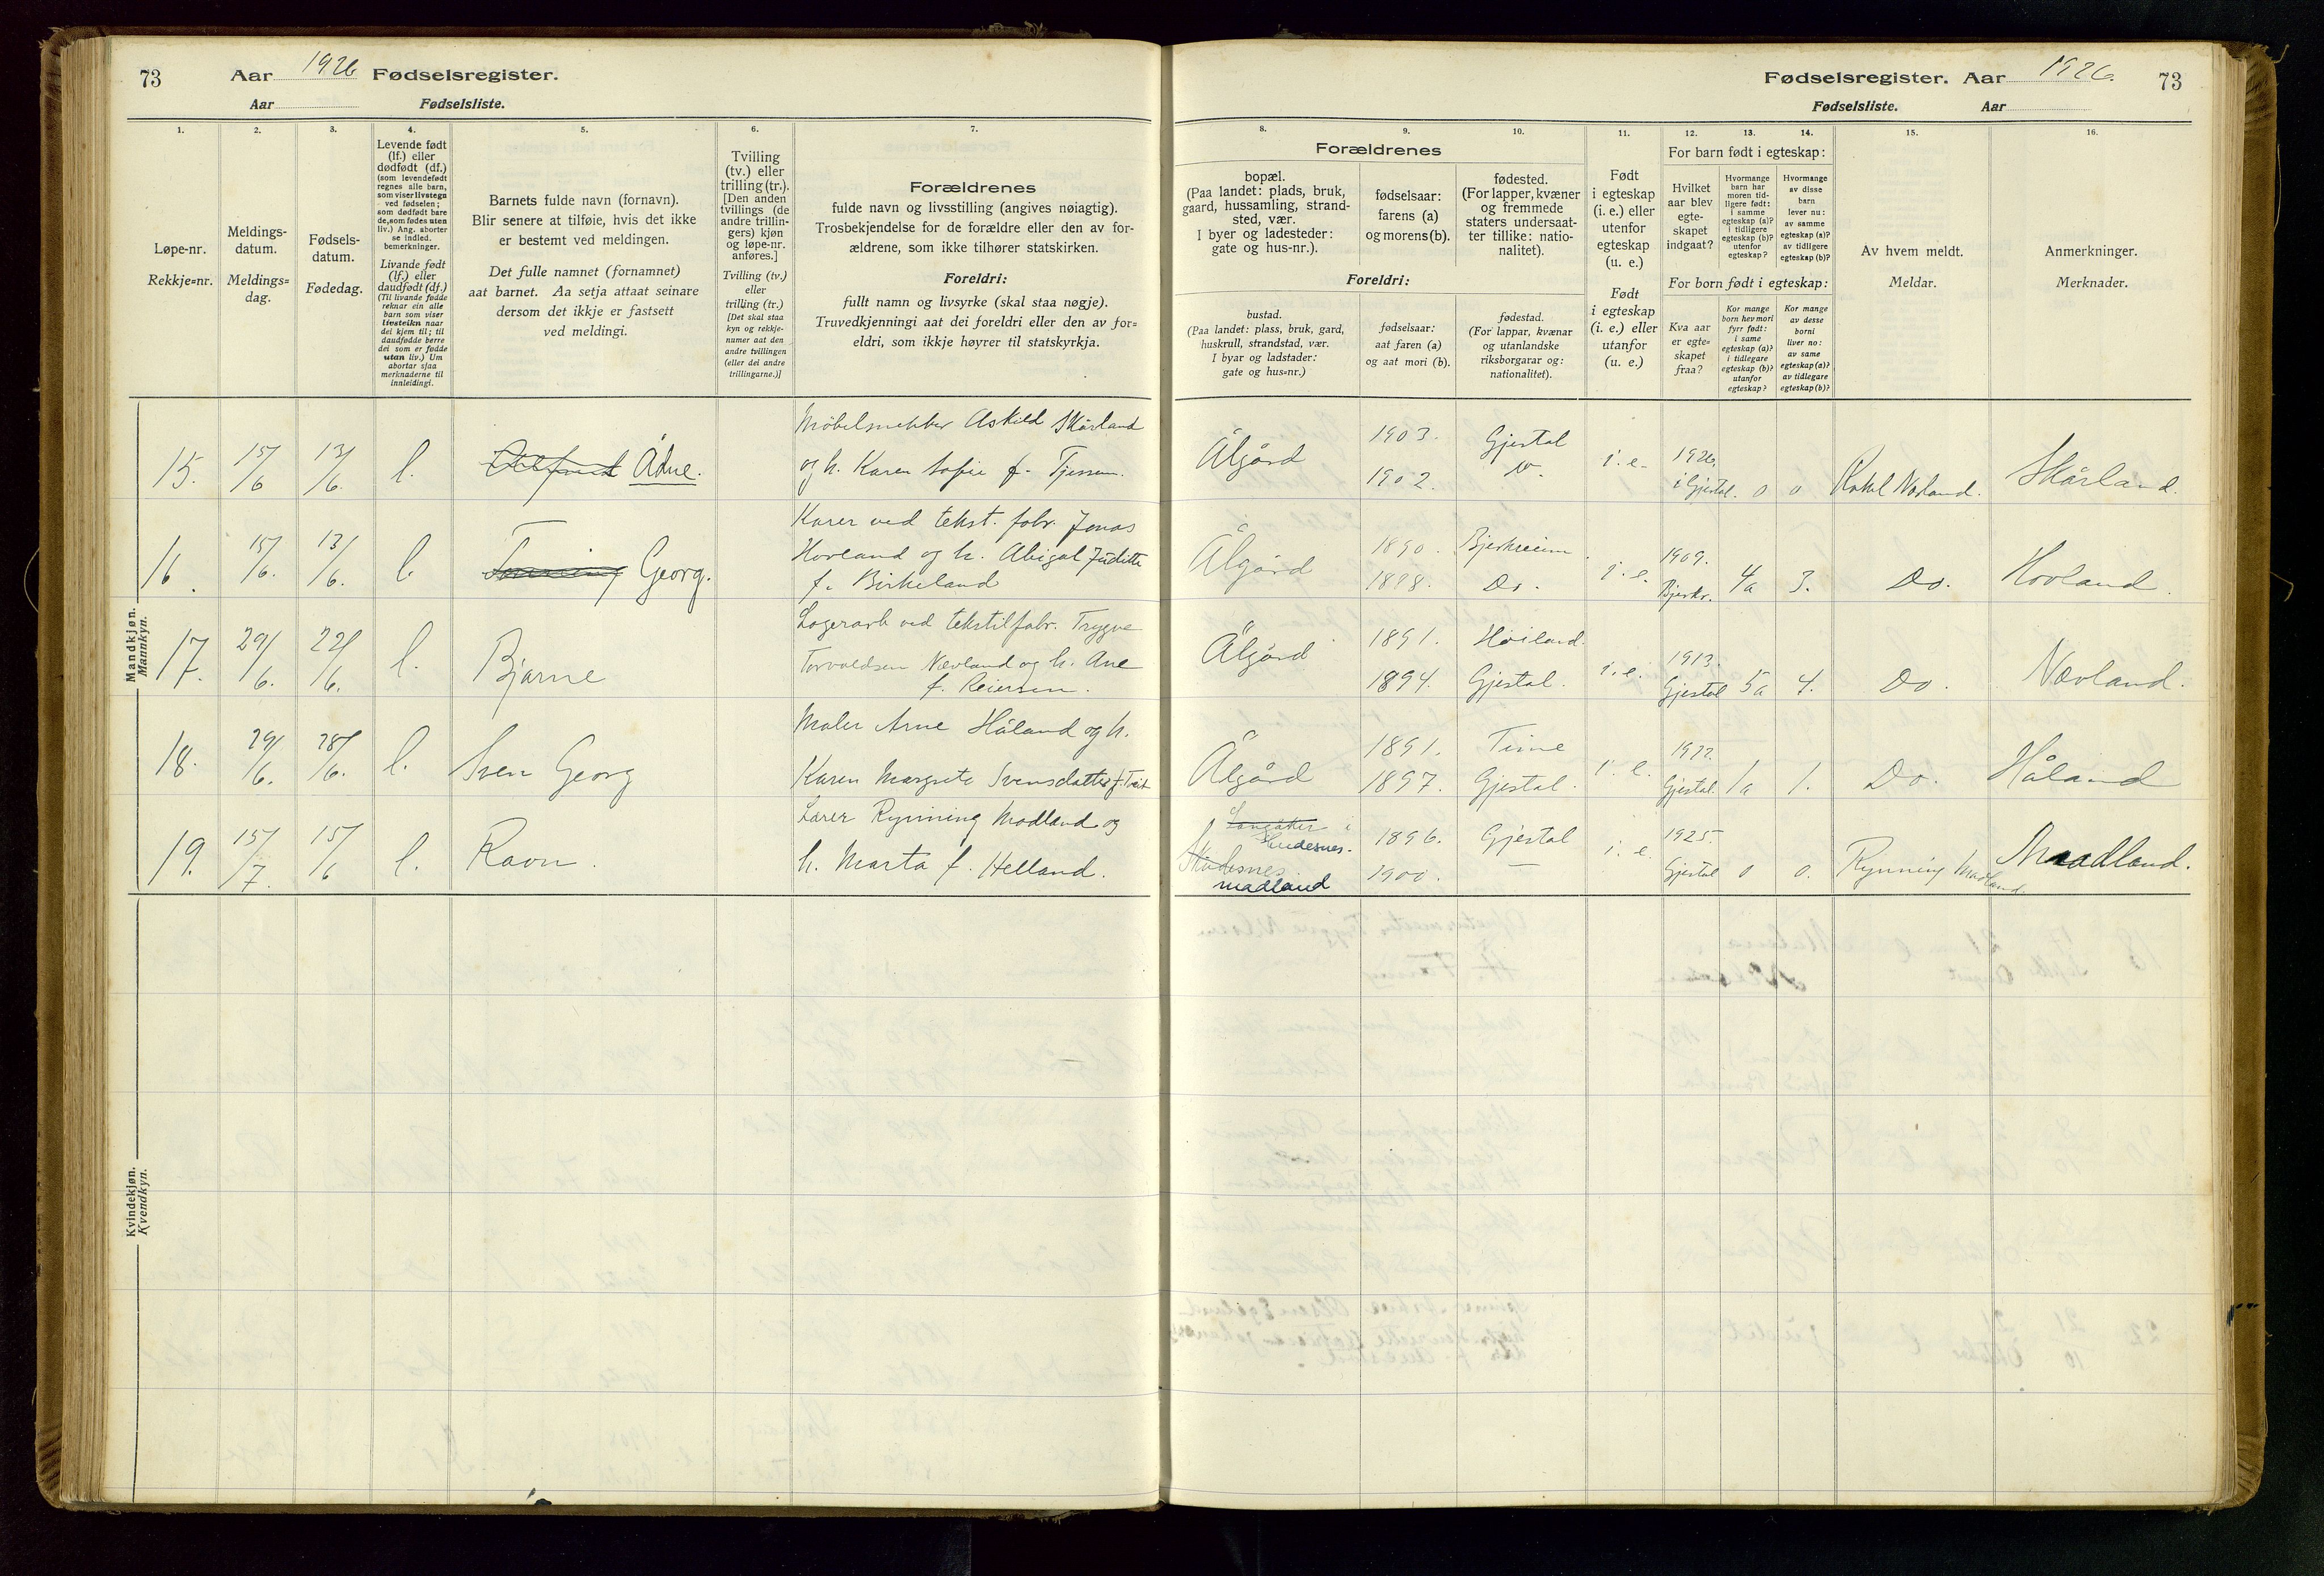 73 Aar 1926 Fødselsregister.
Aar Fødselsliste.
Fødselsregister. Aar 1926. 73
Fødselsliste. Aar
1.
Løpe-nr.
Rekkje=nr.
2.
Meldings-
datum.
Meldings=
dag.
3.
Fødsels-
datum.
Fødedag.
4.
Levende født
(lf.) eller
dødfødt (df.)
(som levendefødt
regnes alle barn,
som viser livstegn
ved fødselen;
som dødfødt bare
de, som fødes uten
liv.) Ang. aborter
se indled.
bemerkninger.
Livande født
(lf.) eller
daudfødt (df.)
(Til livande fødde
reknar ein alle
barn som viser
livsteikn naar
dei kjem til; til
daudfødde berre
dei som er fødde
utan liv.) Um
abortar sjaa
merknaderne til
innleidingi.
5.
Barnets fulde navn (fornavn).
Blir senere at tilføie, hvis det ikke
er bestemt ved meldingen.
Det fulle namnet (fornamnet)
aat barnet. Aa setja attaat seinare
dersom det ikkje er fastsett
ved meldingi.
6.
Tvilling
(tv.) eller
trilling (tr.).
[Den anden
tvillings (de
andre trillin-
gers) kjøn
og løpe-nr.
anføres.]
Tvilling (tv.)
eller
trilling (tr.)
[Det skal staa
kyn og rekkje-
numer aat den
andre tvillingen
(eller dei andre
trillingarne.)]
7.
Forældrenes
fulde navn og livsstilling (angives nøiagtig).
Trosbekjendelse for de forældre eller den av for-
ældrene, som ikke tilhører statskirken.
Foreldri:
fullt namn og livsyrke (skal staa nøgje).
Truvedkjenningi aat dei foreldri eller den av for=
eldri, som ikkje høyrer til statskyrkja.
Forældrenes
8.
bopæl.
(Paa landet: plads, bruk,
gaard, hussamling, strand-
sted, vær.
I byer og ladesteder:
gate og hus-nr.).
9.
fødselsaar:
farens (a)
og morens (b).
10.
fødested.
(For lapper, kvæner
og fremmede
staters undersaat-
ter tillike: natio-
nalitet).
Foreldri:
bustad.
(Paa landet: plass, bruk, gard,
huskrull, strandstad, vær.
I byar og ladstader:
gate og hus=nr.)
fødselsaar:
aat faren (a)
og aat mori (b).
fødestad.
(For lappar, kvænar
og utanlandske
riksborgarar og:
nationalitet).
11.
Født
i egteskap
(i. e.) eller
utenfor
egteskap
(u. e.)
Født
i egteskap
(i. e.) eller
utanfor
(u. e.)
12. 13. 14.
For barn født i egteskap:
Hvilket
aar blev
egte-
skapet
indgaat?
Hvormange
barn har
moren tid-
ligere født:
i samme
egteskap (a)?
i tidligere
egteskap (b)?
utenfor
egteskap?
Hvormange
av disse
barn
lever nu:
av samme
egteskap (a)?
av tidligere
egteskap (b)?
For born født i egteskap:
Kva aar
er egte=
skapet
fraa?
Kor mange
born hev mori
fyrr født:
i same
egteskap (a)?
i tidlegare
egteskap (b)?
utanfor
egteskap?
Kor mange
av desse
borni
liver no:
av same
egteskap (a)?
av tidlegare
egteskap (b)?
15.
Av hvem meldt.
Meldar.
16.
Anmerkninger.
Merknader.
Mandkjøn.
Mannkyn.
15. 15/6 13/6. l. Ådne. Møbelsnekker Askild Skårland
og h. Karen Sofie f. Tjessem.
Ålgård 1903. Gjestal
1902. Do. i. e. 1926.
i Gjestal. 0 0 Skårland.
16. 15/6. 13/6. l. Georg. Karer ved tekst. fabr. Jonas
Hovland og h. Abigal Juditte
f. Birkeland
Ålgård 1890. Bjerkreim
1898. Do. i. e. 1909.
Bjerkr. 4a 3. Do. Hovland.
17. 29/6. 22/6. l. Bjarne Lagerarb ved tekstilfabr. Trygve
Torvaldsen Nævland og h. Ane
f. Reiersen.
Ålgård 1891. Høiland.
1894. Gjestal. i. e. 1913.
Gjestal 5a 4. Do. Nævland.
18. 29/6. 28/6. l. Sven Georg Maler Arne Håland og h.
Karen Margrete Svensdatter f.
Ålgård 1891. Time
1897. Gjestal. i. e. 1922.
Gjestal. 1a 1. Do. Håland
19. 15/7. 15/6 l. Ravn. Lærer Rynning Modland og
h. Marta f. Helland.
i
Skudesnes.
madland
1896. Gjestal
1900. — i. e. 1925.
Gjestal 0 0. Rynning Madland. Maadland.
Kvindekjøn.
Kvendkyn.